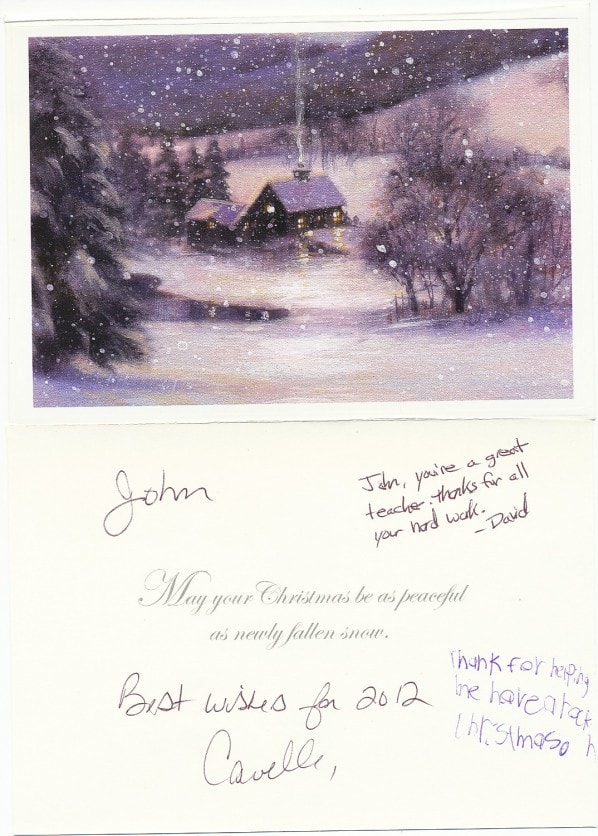 John
John, you're a great
teacher. thanks for all
your hard work.
- David
May your Christmas be as peaceful
as newly fallen snow.
Thunk for helping
me have a
Best wishes for 2012
Cavelle,